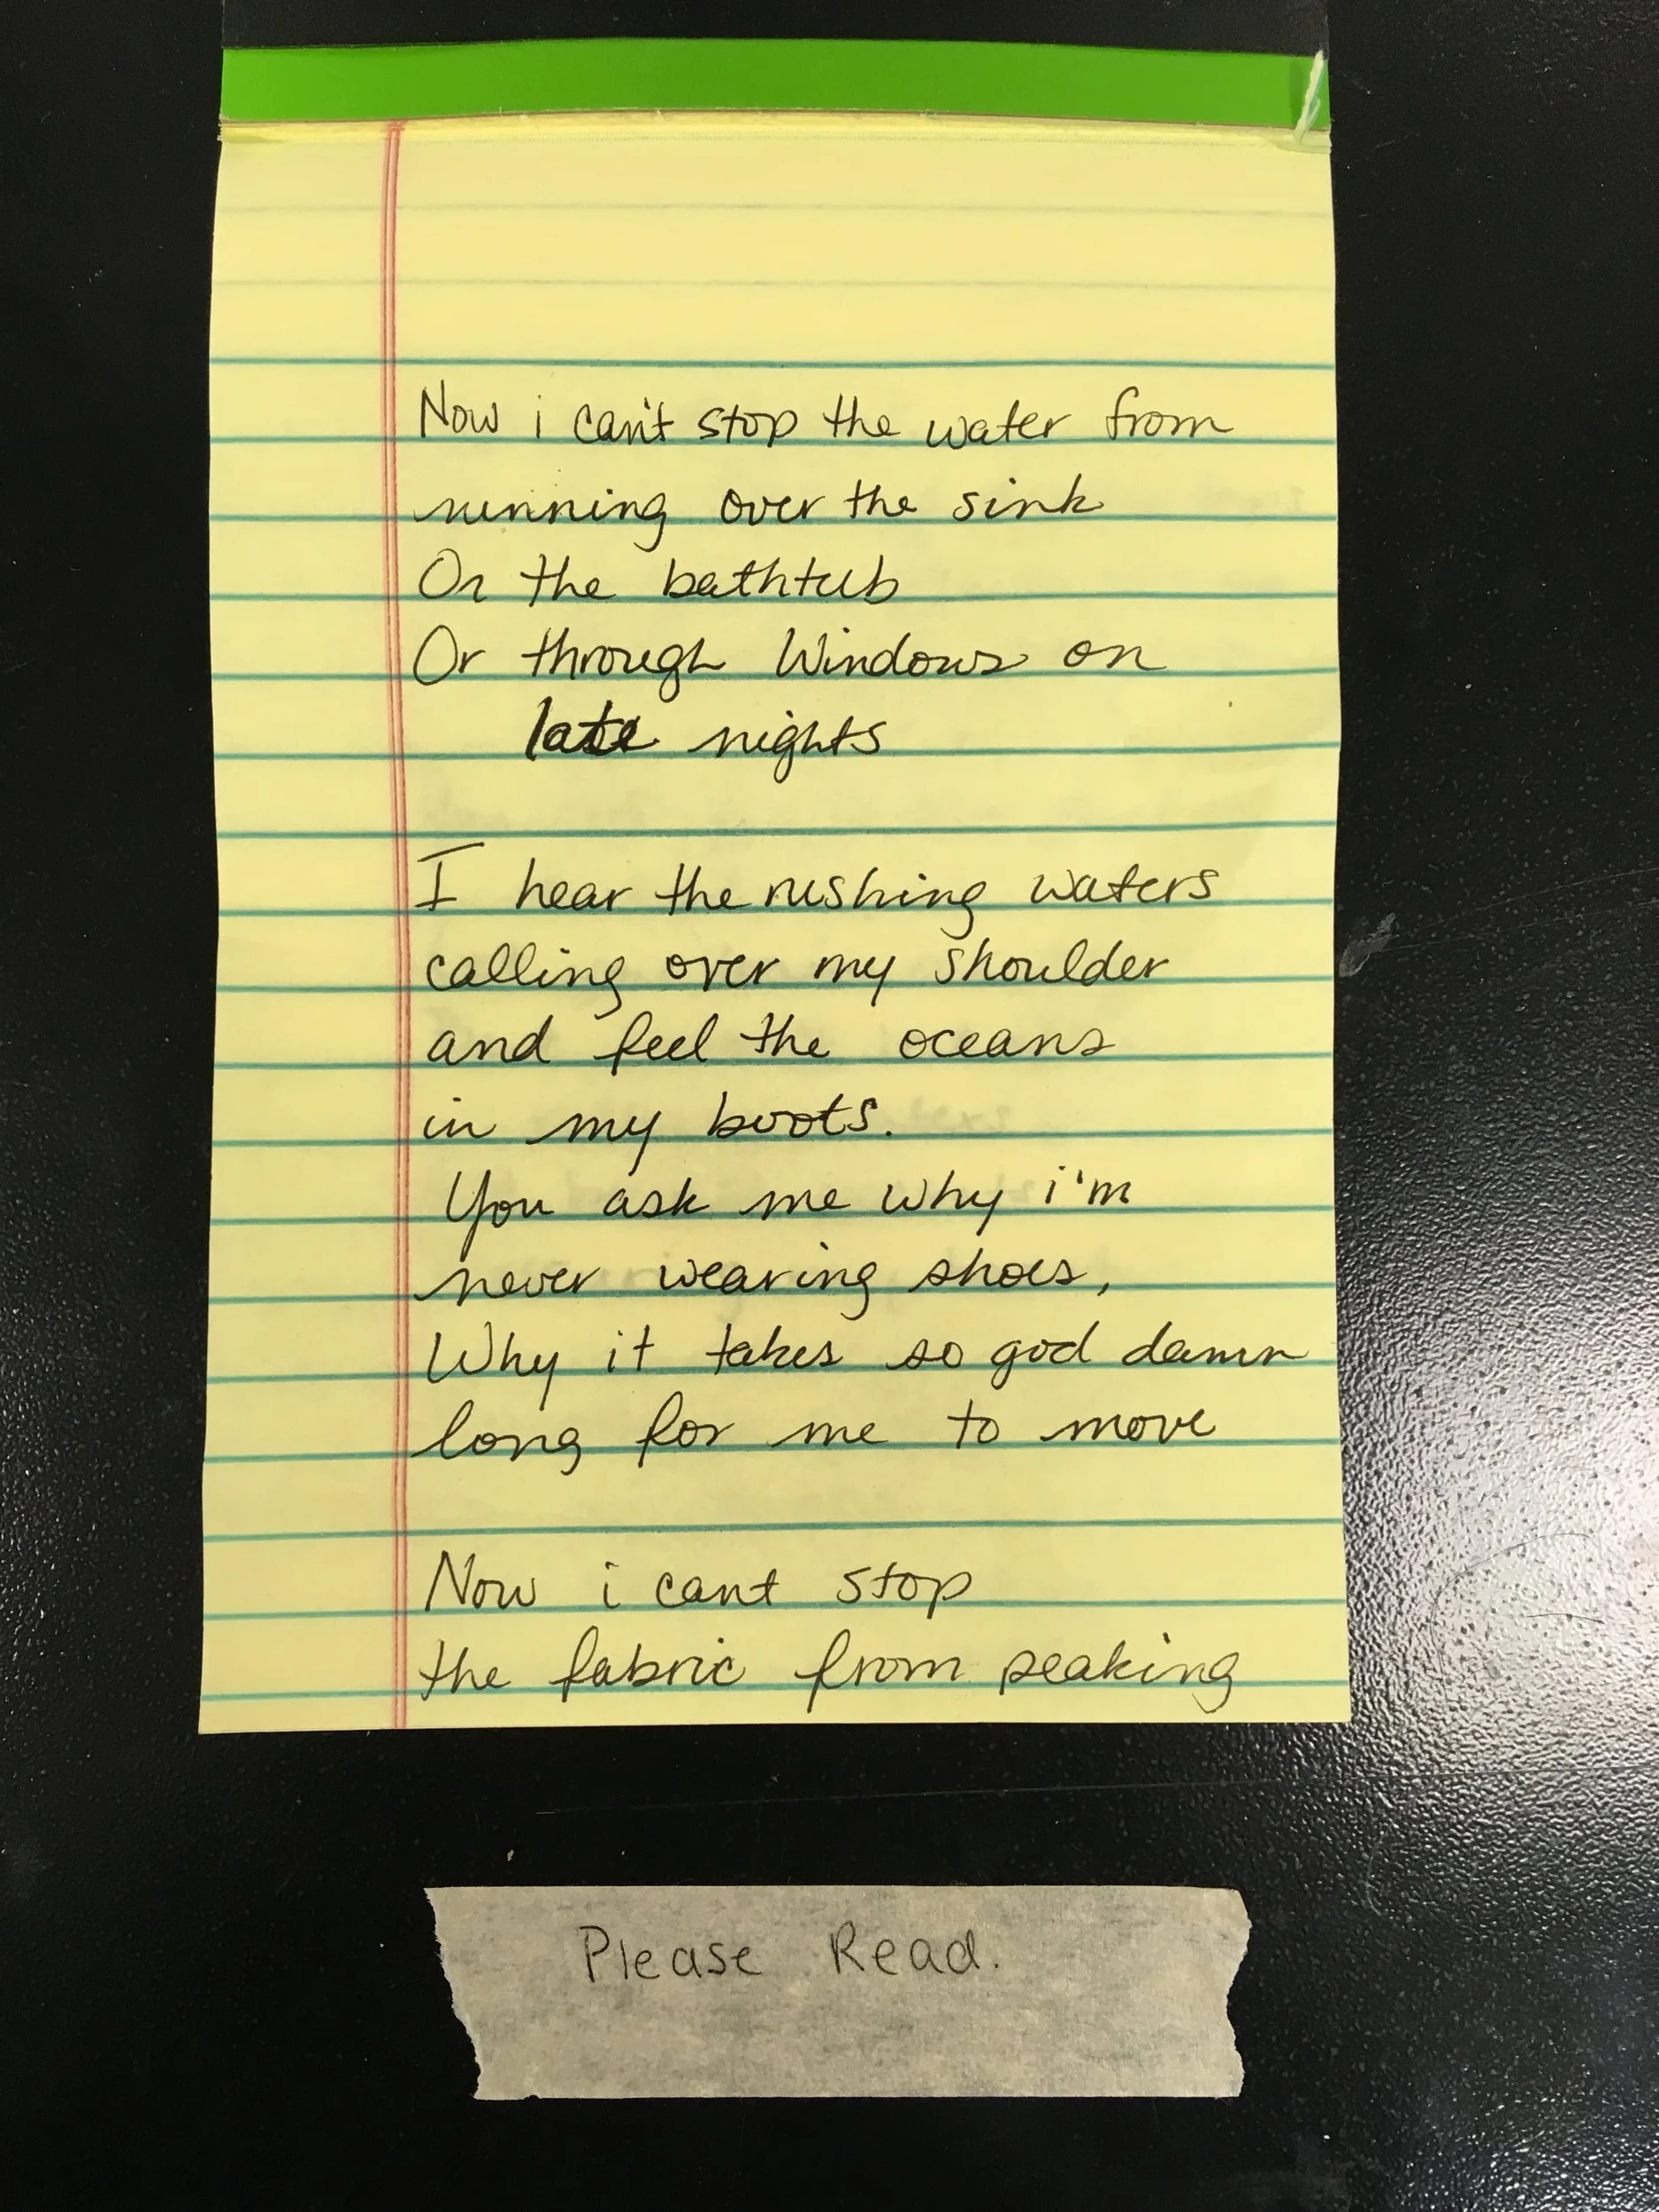 Now i can't stop the water from
running over the sink
Or the bathtub
Or through Windows on
late nights
I hear the rushing waters
calling over my shoulder
and feel the oceans
in my boots.
You ask me why i'm
never wearing shoes,
Why it takes so god damn
long for me to move
Now i cant stop
the fabric from peaking
Please Read.